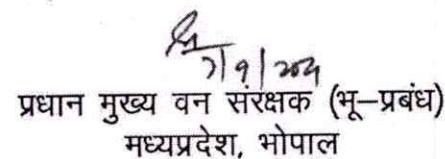 7/9/2021
प्रधान मुख्य वन संरक्षक (भू-प्रबंध)
मध्यप्रदेश, भोपाल